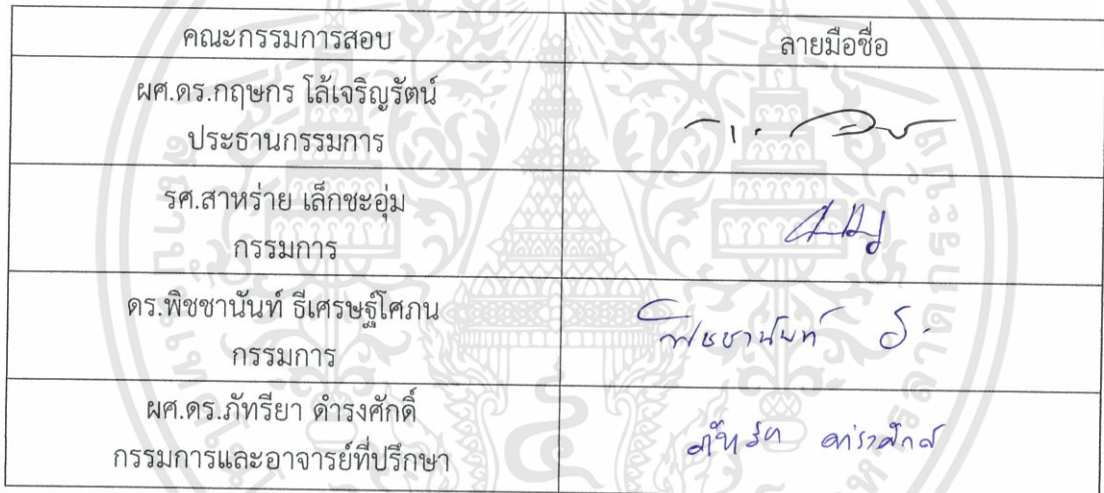 คณะกรรมการสอบ ลายมือชื่อ
ผศ.ดร.กฤษกร โล้เจริญรัตน์
ประธานกรรมการ
รศ.สาหร่าย เล็กชะอุ่ม
กรรมการ
ดร.พิชชานันท์ ธีเศรษฐ์โศภน
กรรมการ
พิชชานันท์ ธ.
ผศ.ดร.ภัทรียา ดำรงศักดิ์
กรรมการและอาจารย์ที่ปรึกษา
ภัทรียา ดำรงศักดิ์